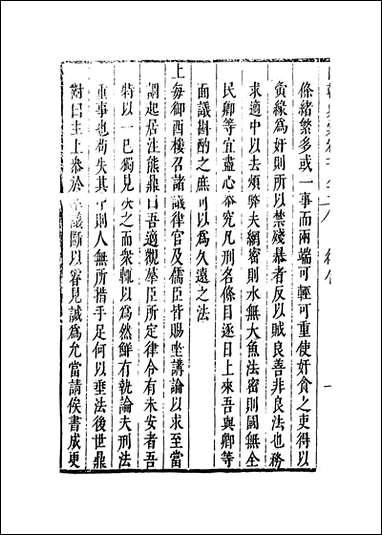 條緒繁多或一事而兩端可輕可重使奸貪之吏得以
夤緣為奸則所以禁殘暴者反以賊良善非良法也務
求適中以去煩弊夫網密則水無大魚法密則國無全
民卿等宜盡心參究凡刑名條目逐日上來吾與卿等
面議斟酌之庶可以為久遠之法
上每御西樓召諸議律官及儒臣皆賜坐講論以求至當
謂起居注熊鼎曰吾適觀羣臣所定律令有未安者吾
特以一己獨見决之而衆輒以為然鮮有執論夫刑法
重事也苟失其中則人無所措手足何以垂法後世鼎
對曰主上叅於羣議斷以睿見誠為允當請俟書成更